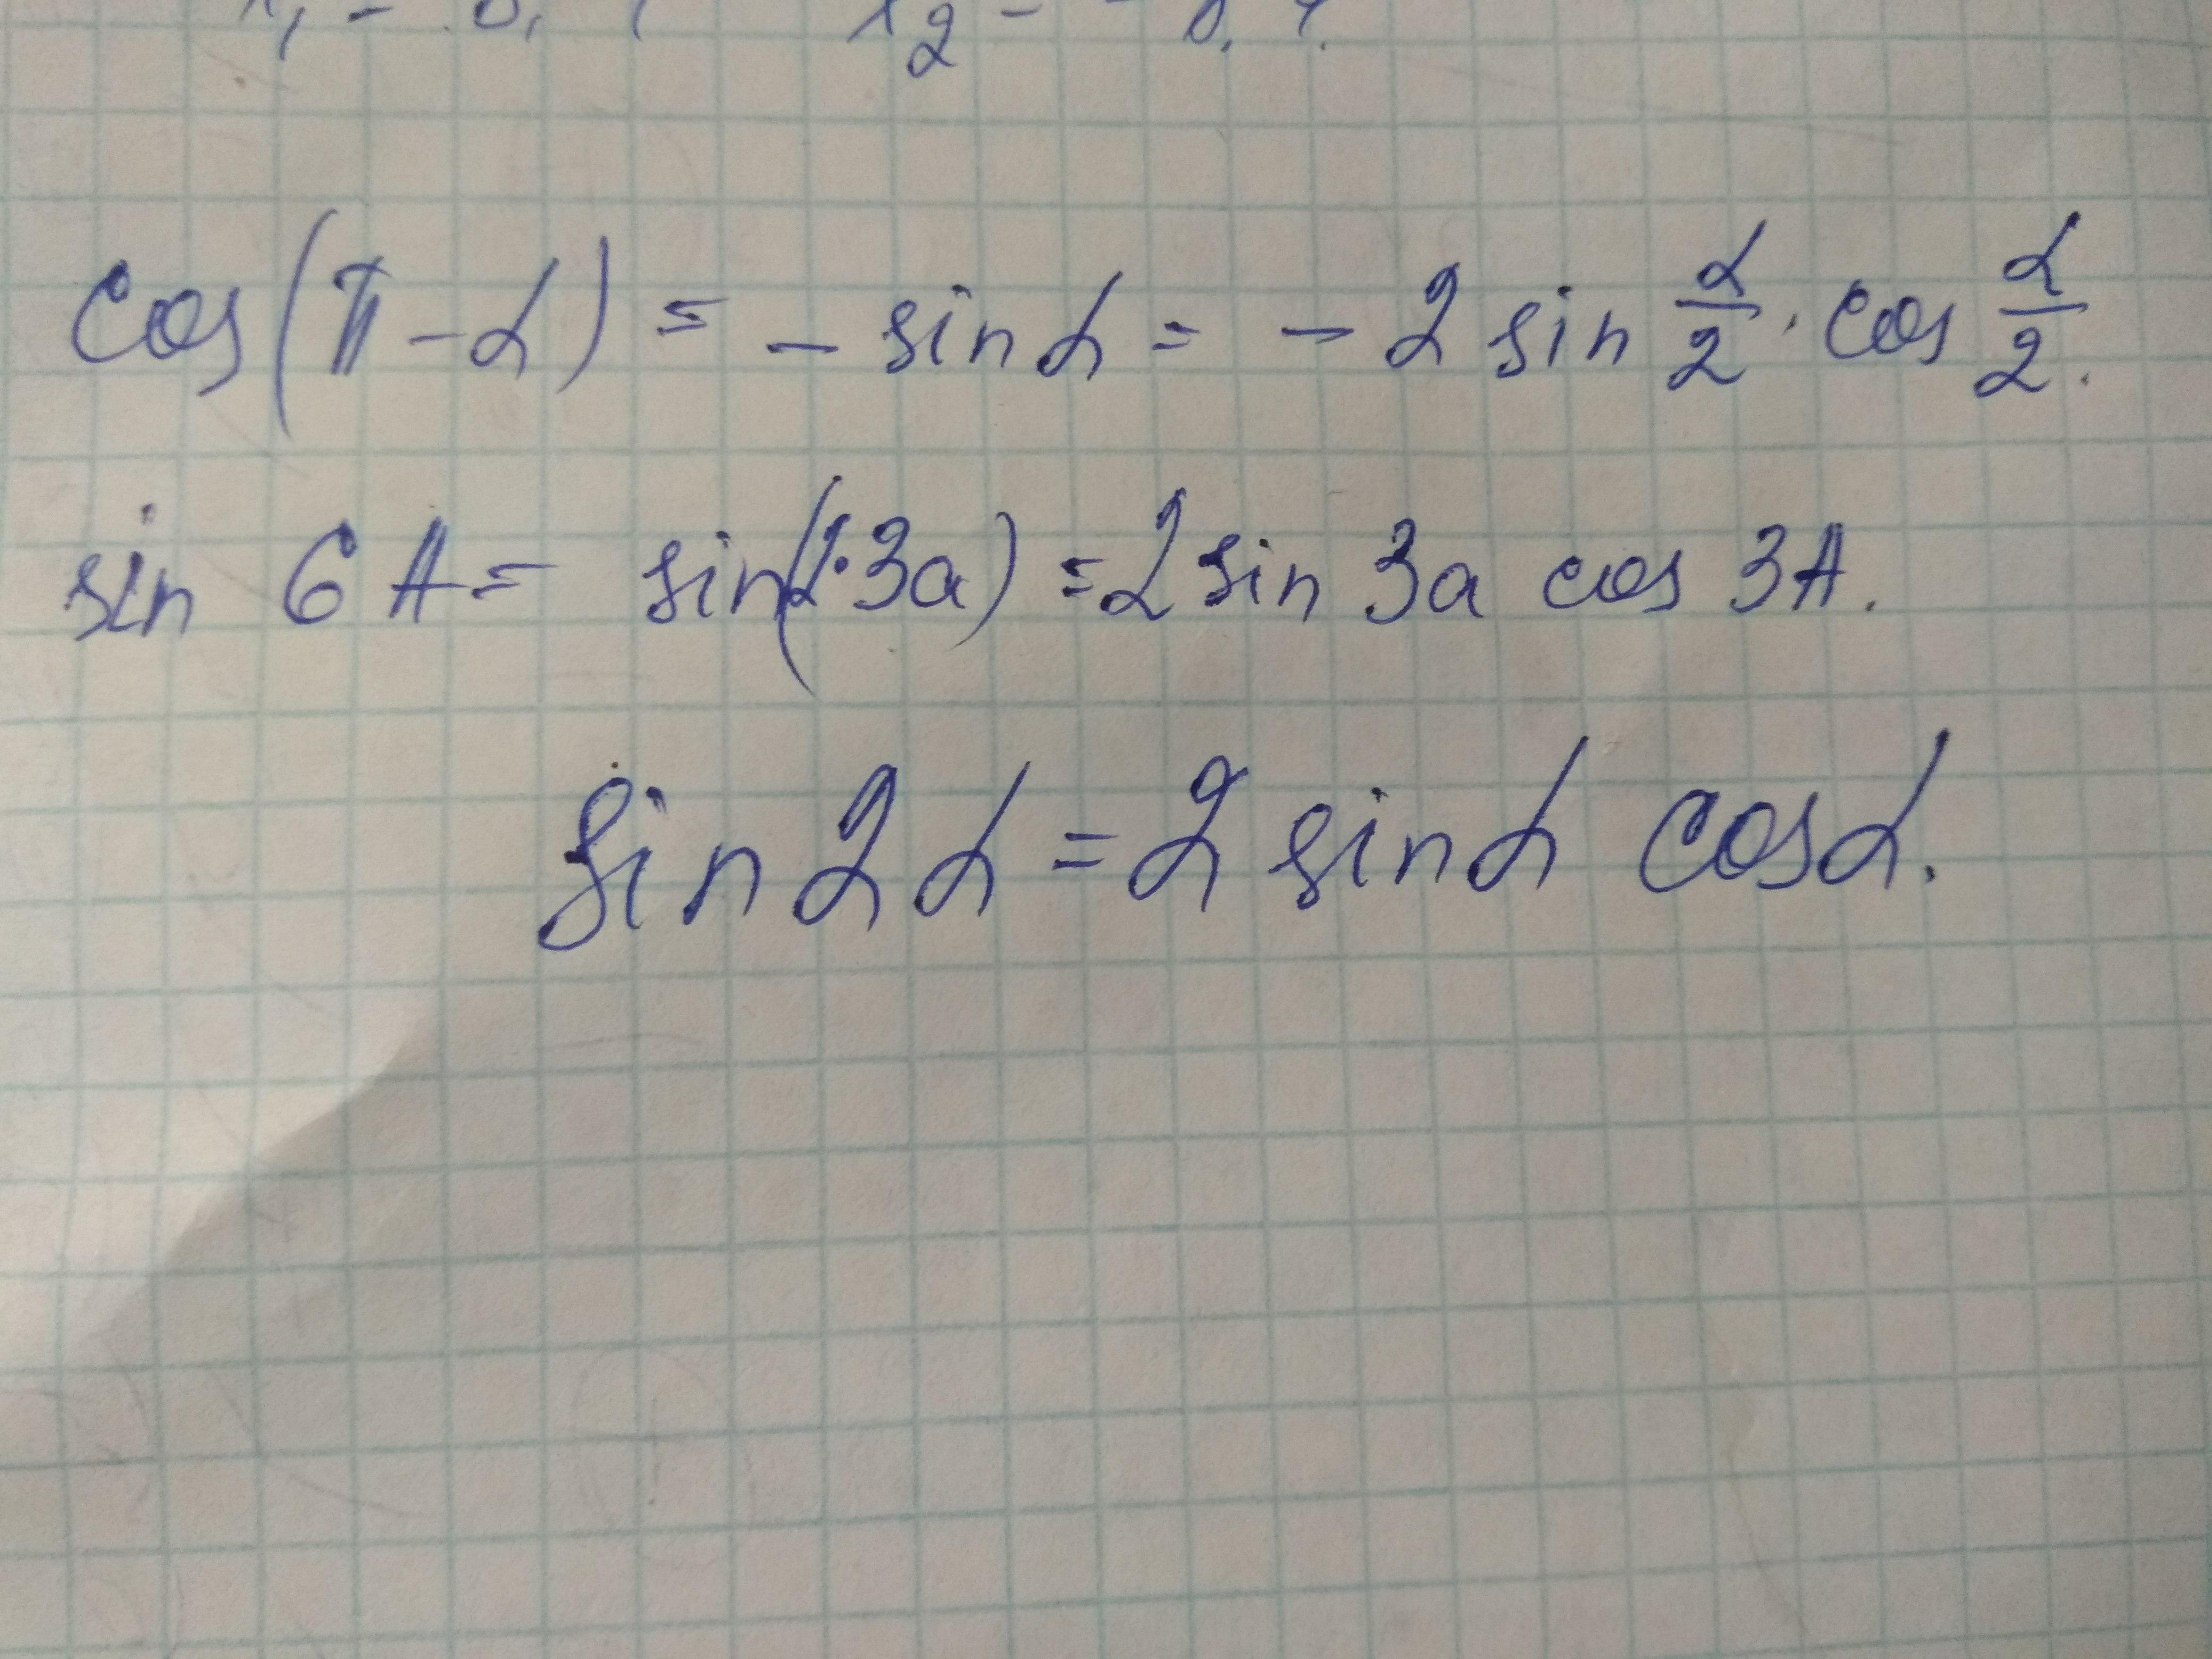 cos(π-α) = - sin α = - 2 sin α/2 · cos α/2.
sin 6A = sin(2·3a) = 2 sin 3a cos 3A.
sin 2α = 2 sin α cos α.